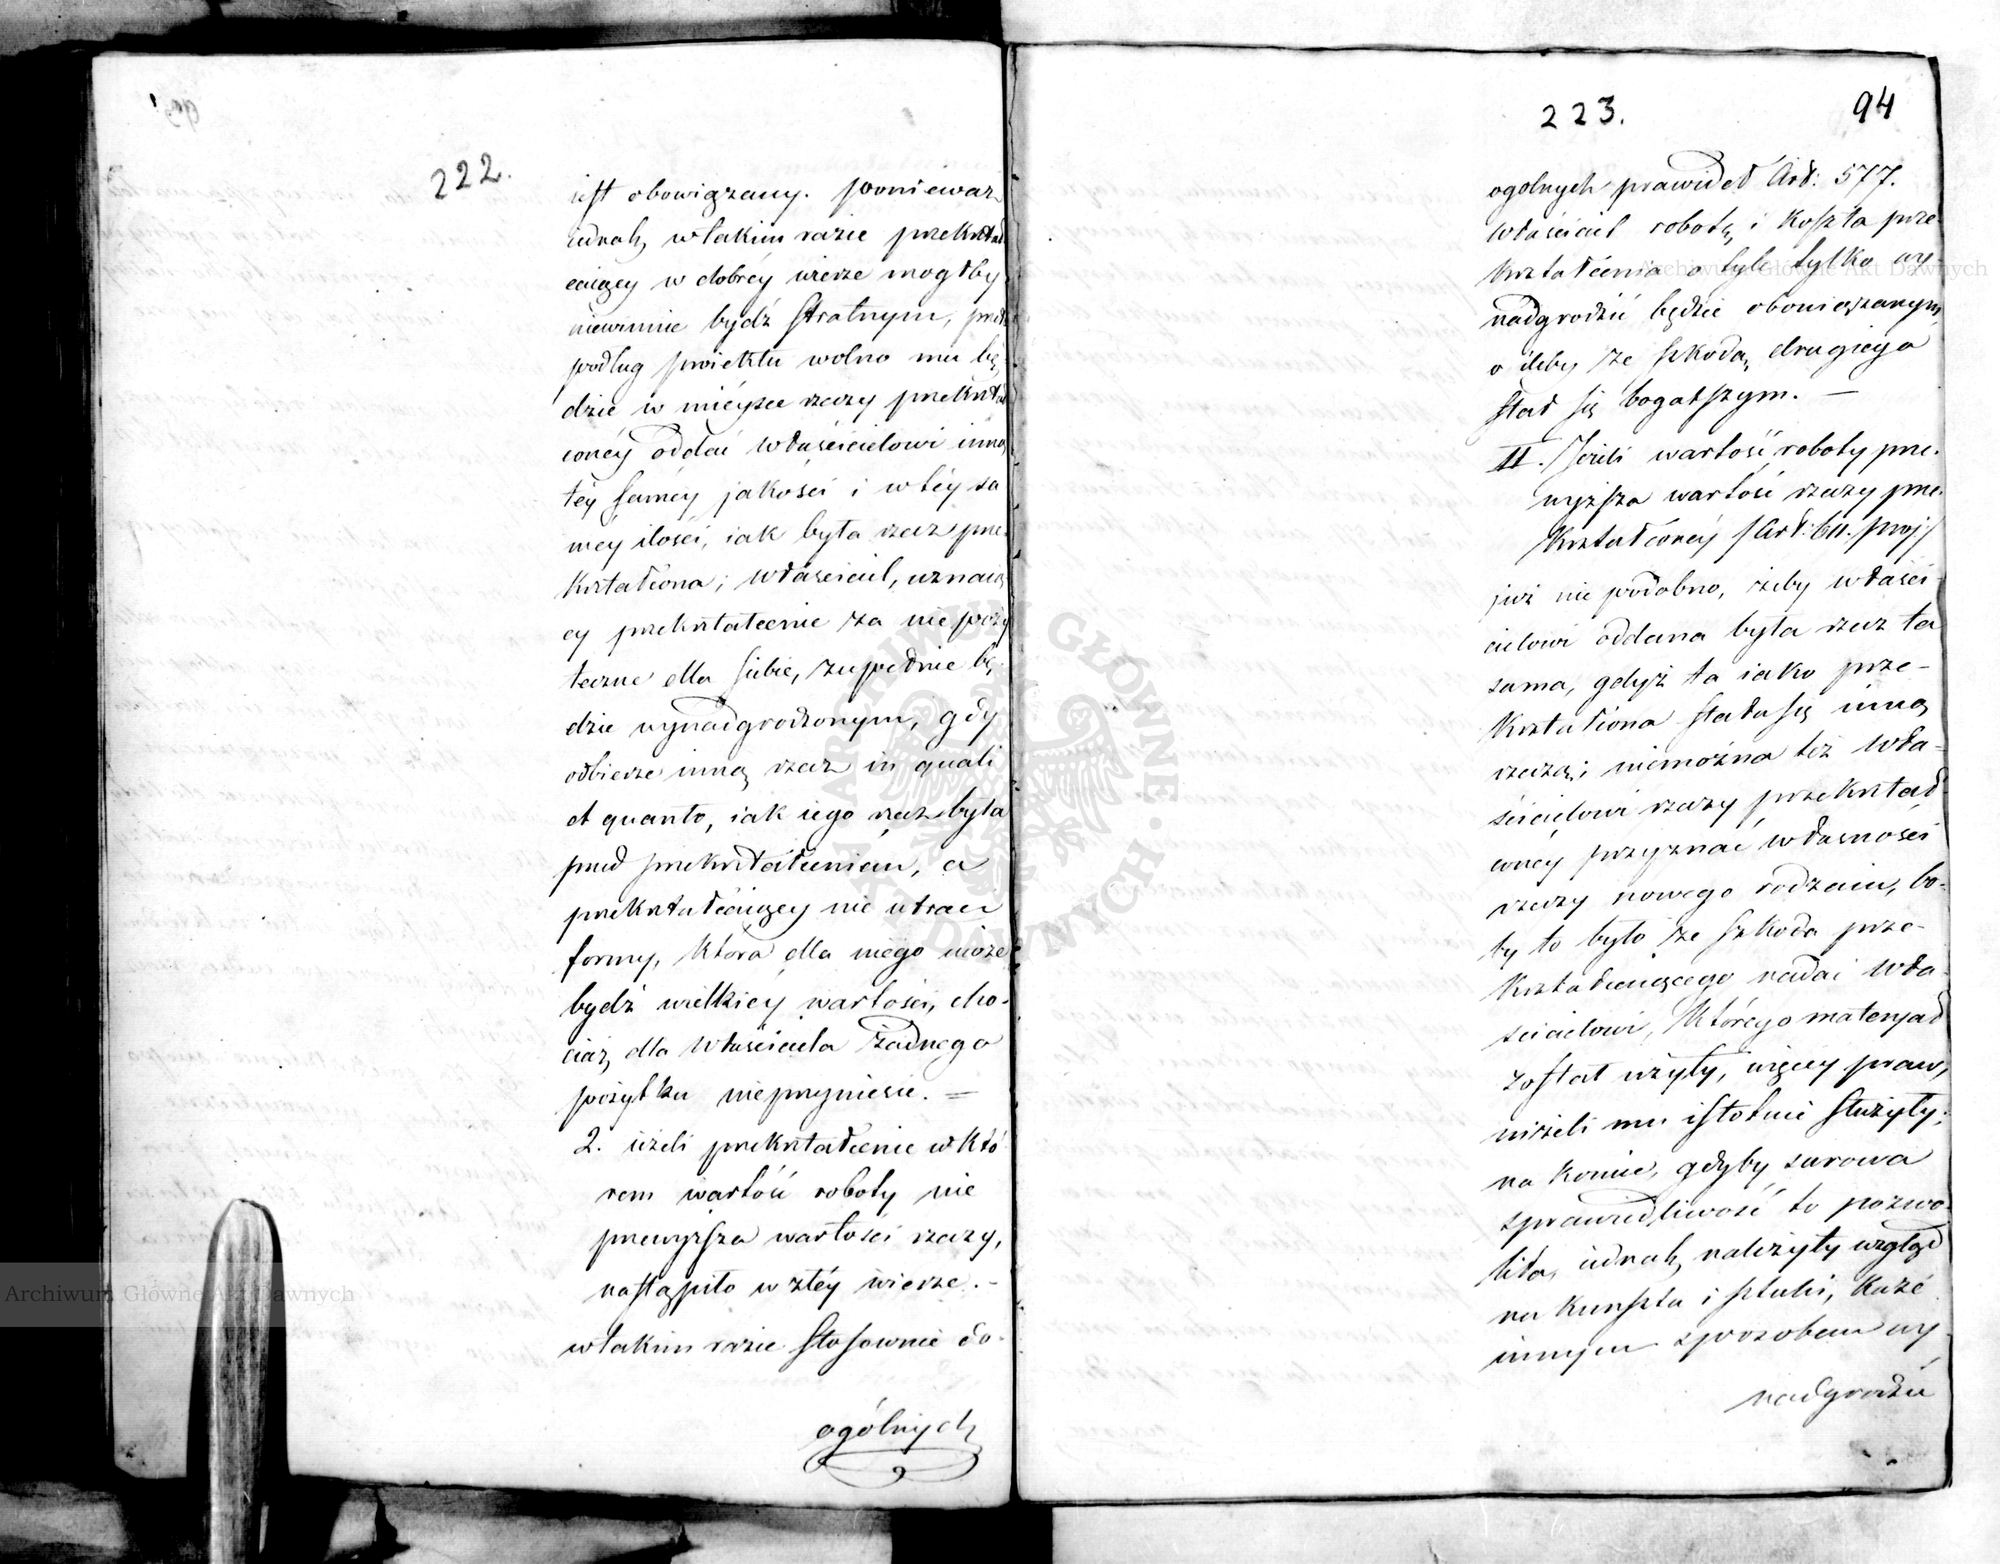 222.
iest obowiązany. ponieważ
iednak w takim razie przekształ
caiący w dobréy wierze mogłby
niewinnie bydź stratnym,
podług proiektu wolno mu bę
dzie w miéysce rzeczy przekształ
conéy oddać właścicielowi inną
téy saméy jakości i w téy sa
méy ilości, iak była rzecz prze
kształcona; właściciel, uznaią
cy przekształcenie za niepoży
teczne dla siebie, zupełnie bę
dzie wynadgrodzonym, gdy
odbierze inną rzecz in quali
et quanto, iak iego rzecz była
przed przekształceniem, a
przekształcaiący nie utraci
formy, która dla niego może
bydź wielkiéy wartości, cho-
ciaż dla właściciela żadnego
pożytku nieprzyniesie. =
2. ieżeli przekształcenie w któ
rem wartość roboty nie
przewyższa wartości rzeczy,
nastąpiło w złéy wierze. -
w takim razie stosownie do-
ogólnych
223.
94
ogolnych prawideł Art: 577.
właściciel robotę i koszta prze
kształcenia o tyle tylko wy-
nadgrodzić będzie obowiązanym,
o ileby ze szkodą drugiego
stał się bogatszym. —
II. Jeżeli wartość roboty prze-
wyższa wartość rzeczy prze-
kształconéy /Art: 611. proj:/
już nie podobno, żeby właści-
cielowi oddana była rzecz ta
sama, gdyż ta iako prze-
kształcona stała się inną
rzeczą; niemożna też wła-
ścicielowi rzeczy przekształ-
conéy przyznać własności
rzeczy nowego rodzaiu, bo-
by to było ze szkodą prze-
kształcaiącego nadać wła-
scicielowi, którego materyał
został użyty, więcéy praw,
niżeli mu istotnie służyły;
na koniec, gdyby surowa
sprawiedliwość to pozwo-
liła, iednak należyty wzgląd
na kunszta i sztuki, każe
innym sposobem wy-
nadgrodzić
Archiwum Główne Akt Dawnych
Archiwum Główne Akt Dawnych
ARCHIWUM GŁÓWNE AKT DAWNYCH